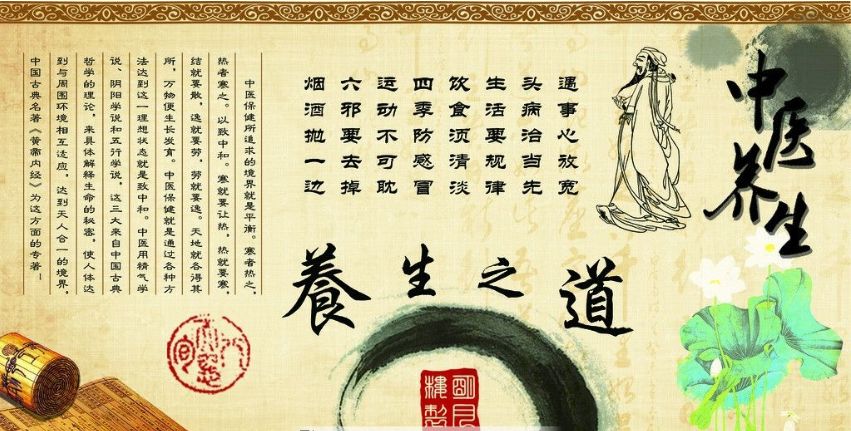 中医养生
遇事心放宽
头病治当先
生活要规律
饮食须清淡
四季防感冒
运动不可耽
六邪要去掉
烟酒抛一边
養生之道
中医保健所追求的境界就是平衡。寒者热之，
热者寒之。以致中和。寒就要让热，热就要寒，
结就要散，逸就要劳，劳就要逸。天地就各得其
所，万物便生长发育。中医保健就是通过各种方
法达到这一理想状态就是致中和。中医用精气学
说、阴阳学说和五行学说，这三大来自中国古典
哲学的理论，来具体解释生命的秘密，使人体达
到与周围环境相互适应，达到天人合一的境界，
中国古典名著《黄帝内经》为这方面的专著—